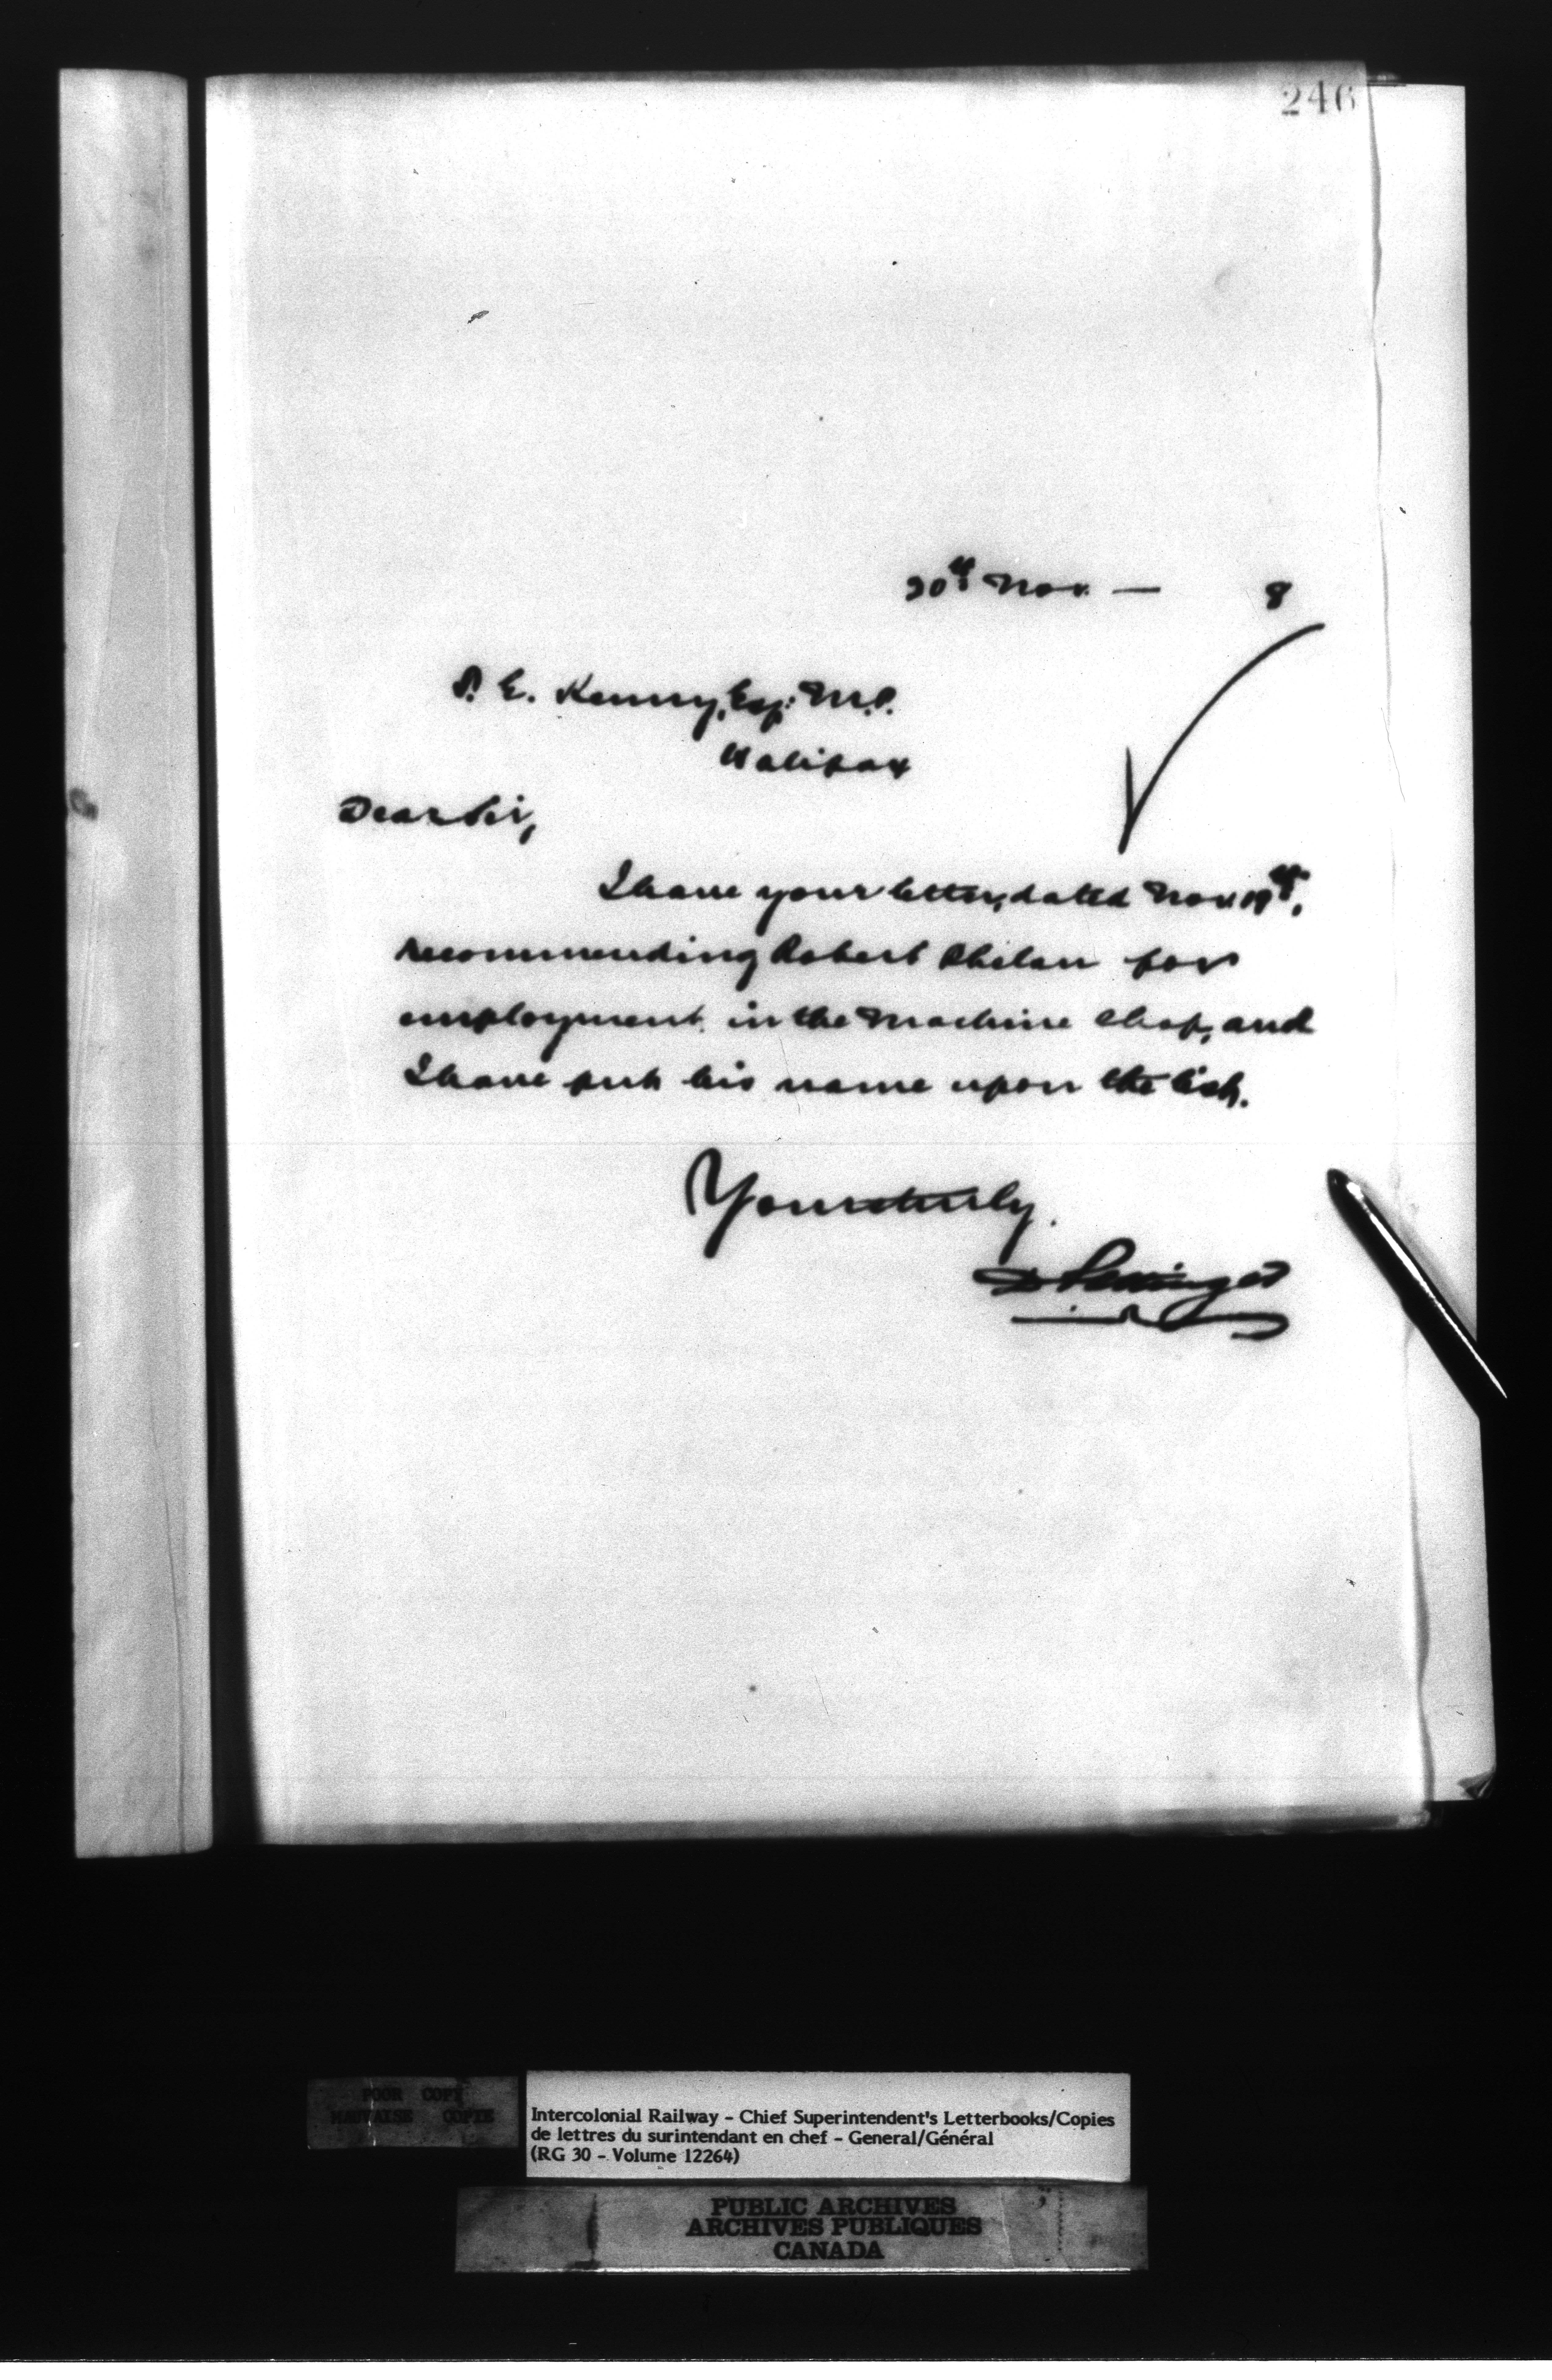 246
20th Nov. — 8
T. E. Kenny, Esq: M.P.
Halifax
Dear Sir,
I have your letter, dated Nov 19th,
recommending Robert Phelan for
employment in the Machine Shop, and
I have put his name upon the list.
Yours truly,
D Pottinger
POOR COPY
MAUVAISE COPIE
Intercolonial Railway - Chief Superintendent's Letterbooks/Copies
de lettres du surintendant en chef - General/Général
(RG 30 - Volume 12264)
PUBLIC ARCHIVES
ARCHIVES PUBLIQUES
CANADA